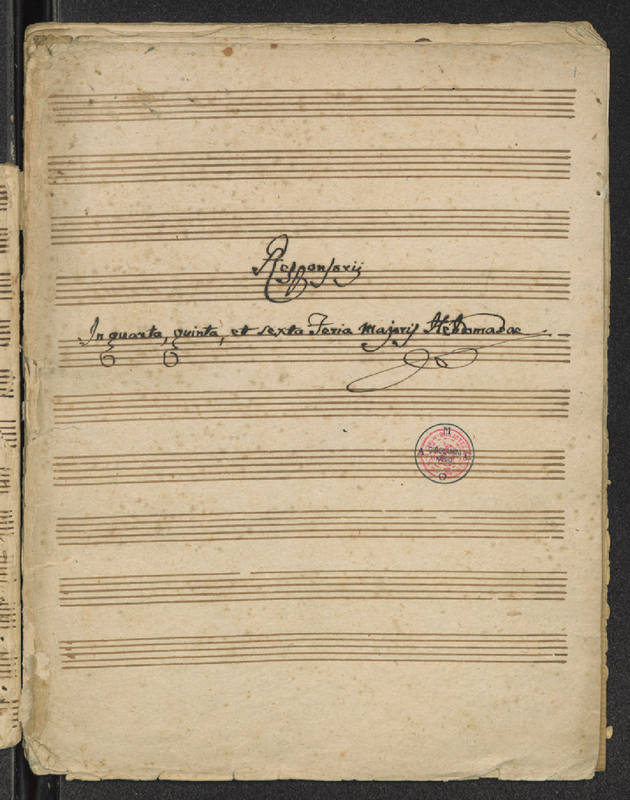 Responsorij
In quarta, quinta, et sexta Feria majoris Hebomadae
M
A
O